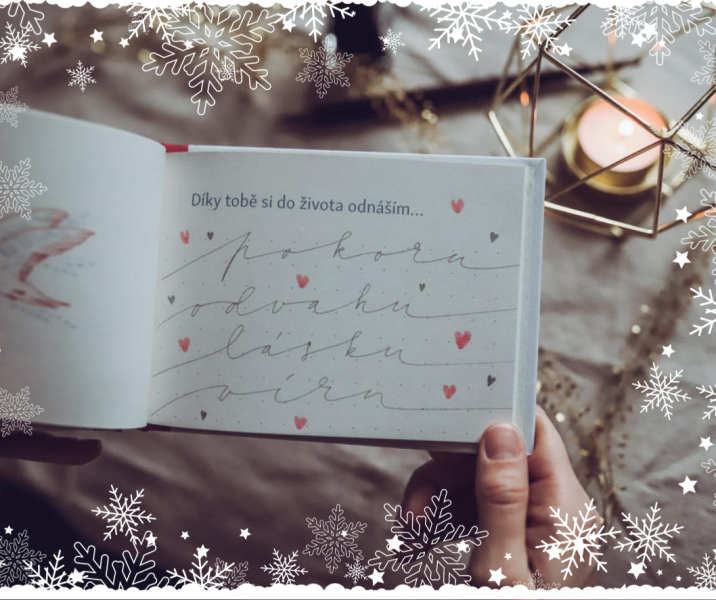 Díky tobě si do života odnáším...
pokoru
odvahu
lásku
víru